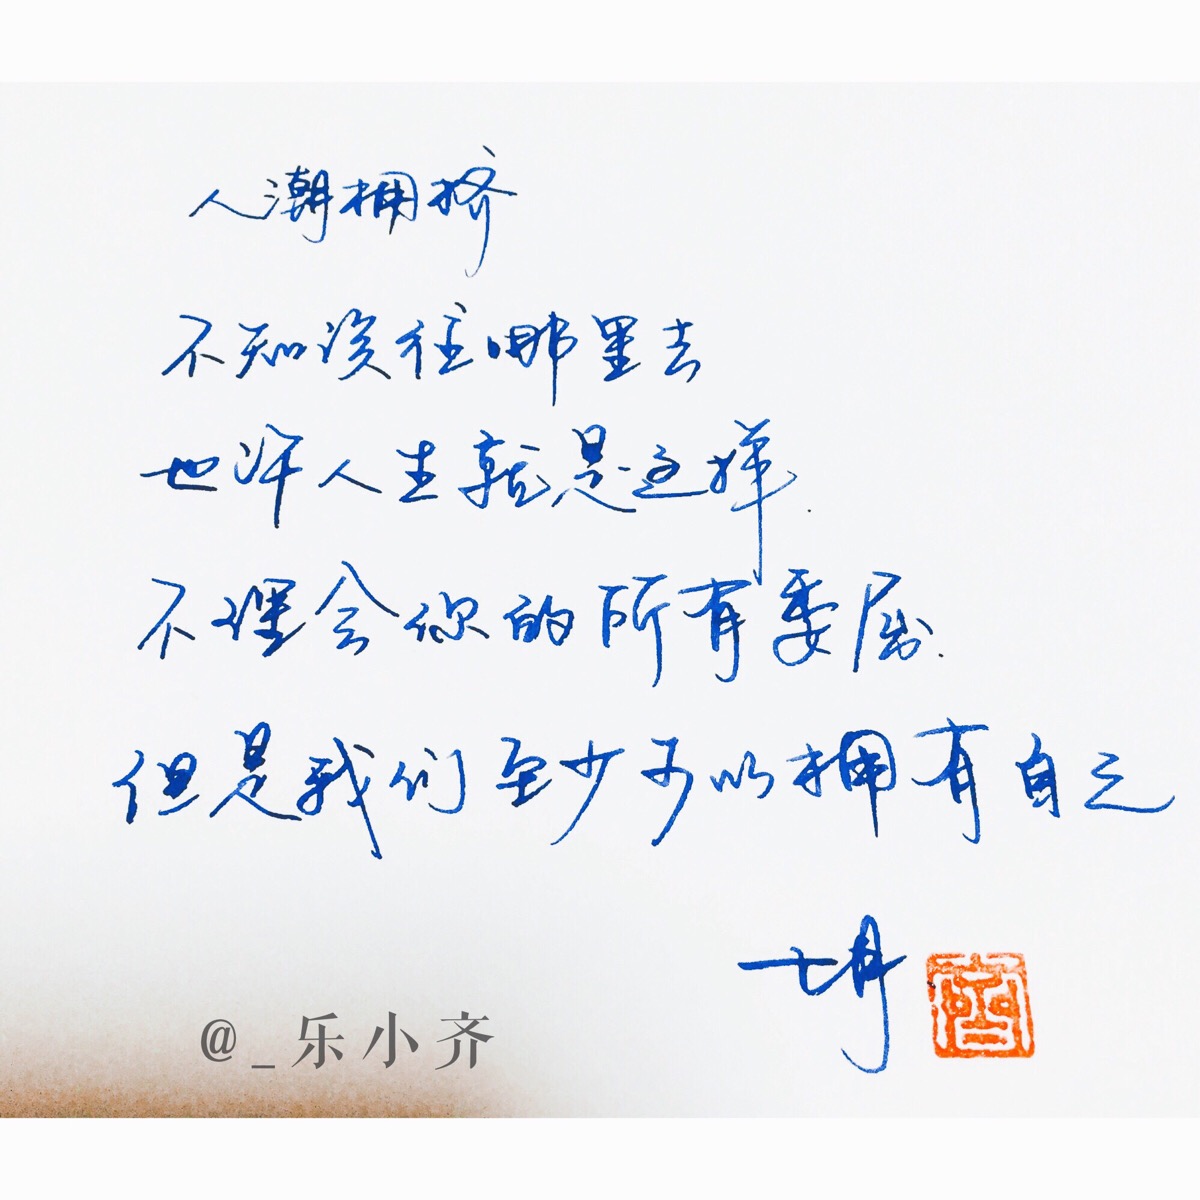 人潮拥挤
不知该往哪里去
也许人生就是这样.
不理会你的所有委屈.
但是我们至少可以拥有自己
七月
@_乐小齐